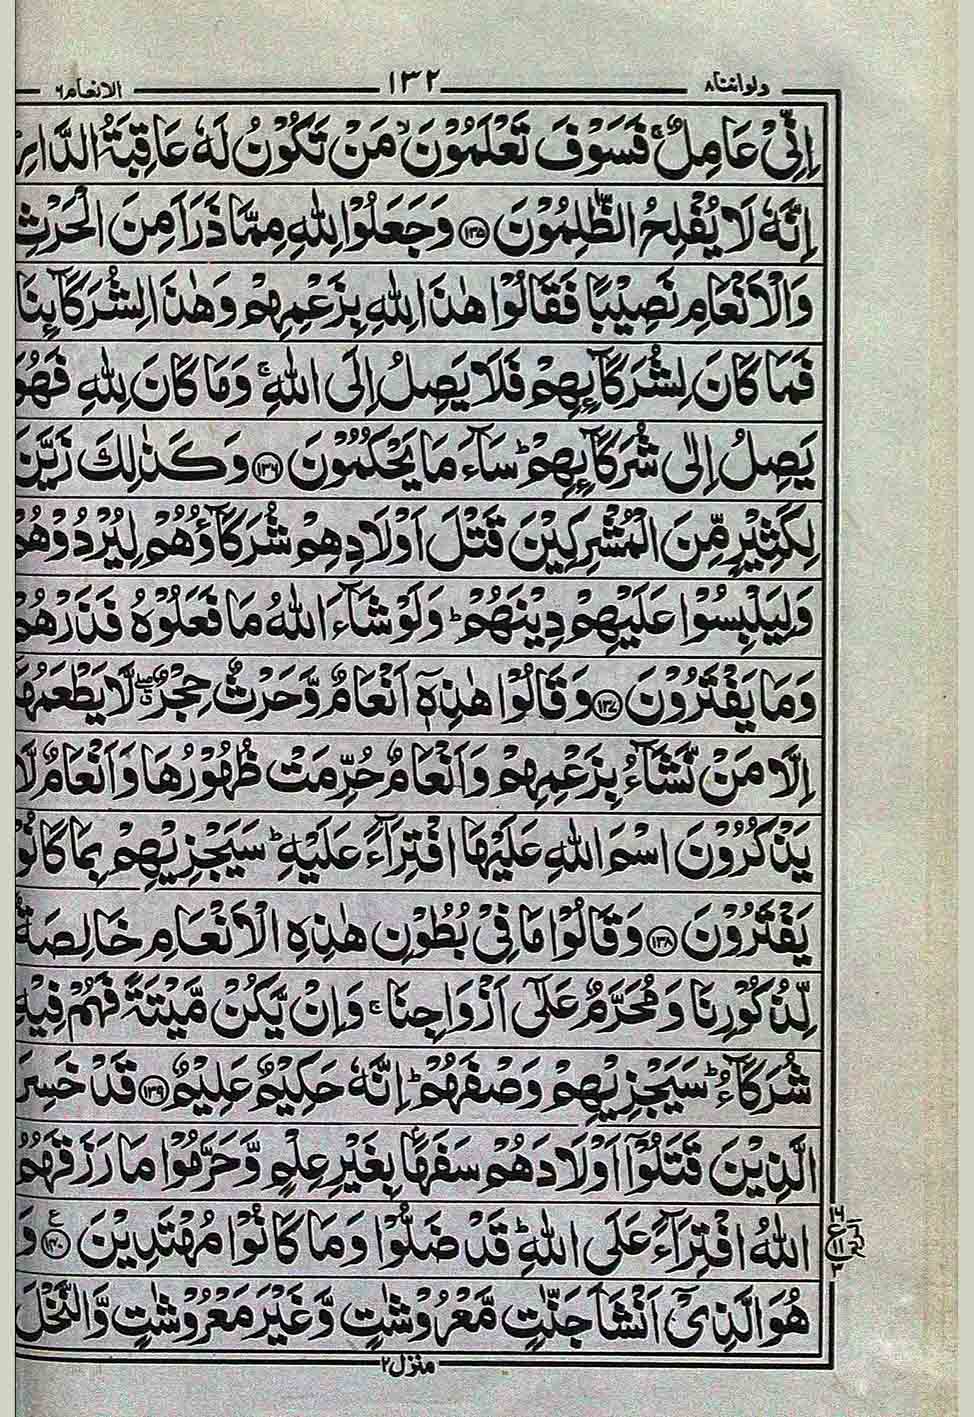 ولواننا۸ ۱۳۲ الانعام۶
اِنِّیْ عَامِلٌ ۚ فَسَوْفَ تَعْلَمُوْنَ ۙ مَنْ تَكُوْنُ لَهٗ عَاقِبَةُ الدَّارِ
اِنَّهٗ لَا یُفْلِحُ الظّٰلِمُوْنَ ﴿۱۳۵﴾ وَجَعَلُوْا لِلّٰهِ مِمَّا ذَرَاَ مِنَ الْحَرْثِ
وَالْاَنْعَامِ نَصِیْبًا فَقَالُوْا هٰذَا لِلّٰهِ بِزَعْمِهِمْ وَهٰذَا لِشُرَكَآىِٕنَا
فَمَا كَانَ لِشُرَكَآىِٕهِمْ فَلَا یَصِلُ اِلَی اللّٰهِ ۚ وَمَا كَانَ لِلّٰهِ فَهُوَ
یَصِلُ اِلٰی شُرَكَآىِٕهِمْ ؕ سَآءَ مَا یَحْكُمُوْنَ ﴿۱۳۶﴾ وَكَذٰلِكَ زَیَّنَ
لِكَثِیْرٍ مِّنَ الْمُشْرِكِیْنَ قَتْلَ اَوْلَادِهِمْ شُرَكَآؤُهُمْ لِیُرْدُوْهُمْ
وَلِیَلْبِسُوْا عَلَیْهِمْ دِیْنَهُمْ ؕ وَلَوْ شَآءَ اللّٰهُ مَا فَعَلُوْهُ فَذَرْهُمْ
وَمَا یَفْتَرُوْنَ ﴿۱۳۷﴾ وَقَالُوْا هٰذِهٖۤ اَنْعَامٌ وَّحَرْثٌ حِجْرٌ لَّا یَطْعَمُهَاۤ
اِلَّا مَنْ نَّشَآءُ بِزَعْمِهِمْ وَاَنْعَامٌ حُرِّمَتْ ظُهُوْرُهَا وَاَنْعَامٌ لَّا
یَذْكُرُوْنَ اسْمَ اللّٰهِ عَلَیْهَا افْتِرَآءً عَلَیْهِ ؕ سَیَجْزِیْهِمْ بِمَا كَانُوْا
یَفْتَرُوْنَ ﴿۱۳۸﴾ وَقَالُوْا مَا فِیْ بُطُوْنِ هٰذِهِ الْاَنْعَامِ خَالِصَةٌ
لِّذُكُوْرِنَا وَمُحَرَّمٌ عَلٰۤی اَزْوَاجِنَا ۚ وَاِنْ یَّكُنْ مَّیْتَةً فَهُمْ فِیْهِ
شُرَكَآءُ ؕ سَیَجْزِیْهِمْ وَصْفَهُمْ ؕ اِنَّهٗ حَكِیْمٌ عَلِیْمٌ ﴿۱۳۹﴾ قَدْ خَسِرَ
الَّذِیْنَ قَتَلُوْۤا اَوْلَادَهُمْ سَفَهًا بِغَیْرِ عِلْمٍ وَّحَرَّمُوْا مَا رَزَقَهُمُ
اللّٰهُ افْتِرَآءً عَلَی اللّٰهِ ؕ قَدْ ضَلُّوْا وَمَا كَانُوْا مُهْتَدِیْنَ ﴿۱۴۰﴾ وَ
هُوَ الَّذِیْۤ اَنْشَاَ جَنّٰتٍ مَّعْرُوْشٰتٍ وَّغَیْرَ مَعْرُوْشٰتٍ وَّالنَّخْلَ
منزل۲